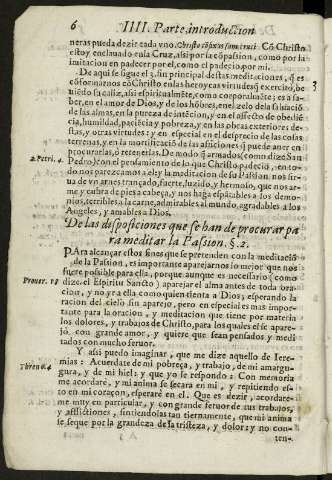 6 IIII. Parte, introduccion
neras pueda dezir cada vno. Christo cõfixus sum cruci. Cõ Christo
estoy enclauado en la Cruz, assi por la cõpasion, como por la
imitacion en padecer por el, como el padecio por mi.
De aqui se sigue el 3. fin principal destas meditaciones, q̃ es
cõformarnos cõ Christo en las heroycas virtudes q̃ exercito, be
uiẽdo su caliz, assi espiritualmẽte, como corporalmẽte; es a sa-
ber, en el amor de Dios, y de los hõbres, en el zelo de la saluaciõ
de las almas, en la pureza de intẽcion, y en el affecto de obediẽ
cia, humildad, paciẽcia y pobreza, y en las obras exteriores de-
stas, y otras virtudes: y en especial en el desprecio de las cosas
terrenas, y en la mortificaciõ de las afficiones q̃ puede auer en
procurarlas, ò retenerlas. De modo q̃ armados (como dize San
2. Petri. 4. Pedro) cõ el pensamiento de lo que Christo padecia, en to-
do nos parezcamos a el: y la meditacion de su Passion nos sir-
ua de vn arnes trançado, fuerte, luzido, y hermoso, que nos ar-
me y cubra de pies a cabeça, y nos haga espãtables a los demo-
nios, terribles a la carne, admirables al mundo, agradables a los
Angeles, y amables a Dios.
3
De las disposiciones que se han de procurar pa
ra meditar la Passion. §. 2.
PAra alcançar estos fines que se pretenden con la meditaciõ
de la Passion, es importante aparejarnos lo mejor que nos
fuere possible para ella, porque aunque es necessario (como
Prouer. 18 dize el Espiritu Sancto) aparejar el alma antes de toda ora-
cion, y no yr a ella como quien tienta a Dios, esperando la
racion del cielo sin aparejo, pero en especial es mas impor-
tante para la oracion, y meditacion que tiene por materia
los dolores, y trabajos de Christo, para los quales el se apare-
jó con grande amor, y quiere que sean pensados y medi-
tados con mucho feruor.
Y assi puedo imaginar, que me dize aquello de Iere-
Thren. 4. mias: Acuerdate de mi pobreça, y trabajo, de mi amargu-
gura, y de mi hiel: y que yo le respondo: Con memoria
me acordaré, y mi anima se secara en mi, y repitiendo es-
to en mi coraçon, esperaré en el. Que es dezir, acordare-
me muy en particular, y con grande feruor de tus trabajos,
y afflictiones, sintiendolas tan tiernamente, que mi anima
se seque por la grandeza de la tristeza, y dolor: y no con-
ten-